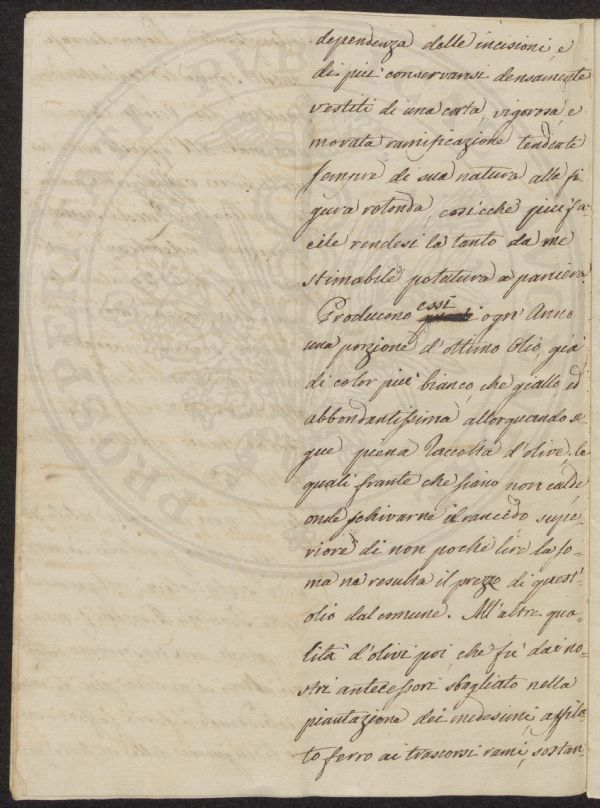 dependenza delle incisioni, e
di piu' conservansi densamente
vestiti di una corta, vigorosa, e
morata ramificazione tendente
sempre di sua natura alla fi
gura rotonda, cosicche piu' fa
cile rendesi la tanto da me
stimabile potatura a paniera.
Producono essi ogn' Anno
una porzione d'ottimo Olio, già
di color piu' bianco, che giallo, ed
abbondantissima allorquando se-
gue piena Raccolta d'olive, le
quali frante che siano non calde
onde schivarne il rancedo supe-
riore di non poche lire la so-
ma ne resulta il prezzo di quest'
olio dal comune. All'altre qua-
lità d'olivi poi, che fu' dai no-
stri antecessori sbagliato nella
piantazione dei medesimi, affila-
to ferro ai trascorsi rami, sostan-
PRO PUB